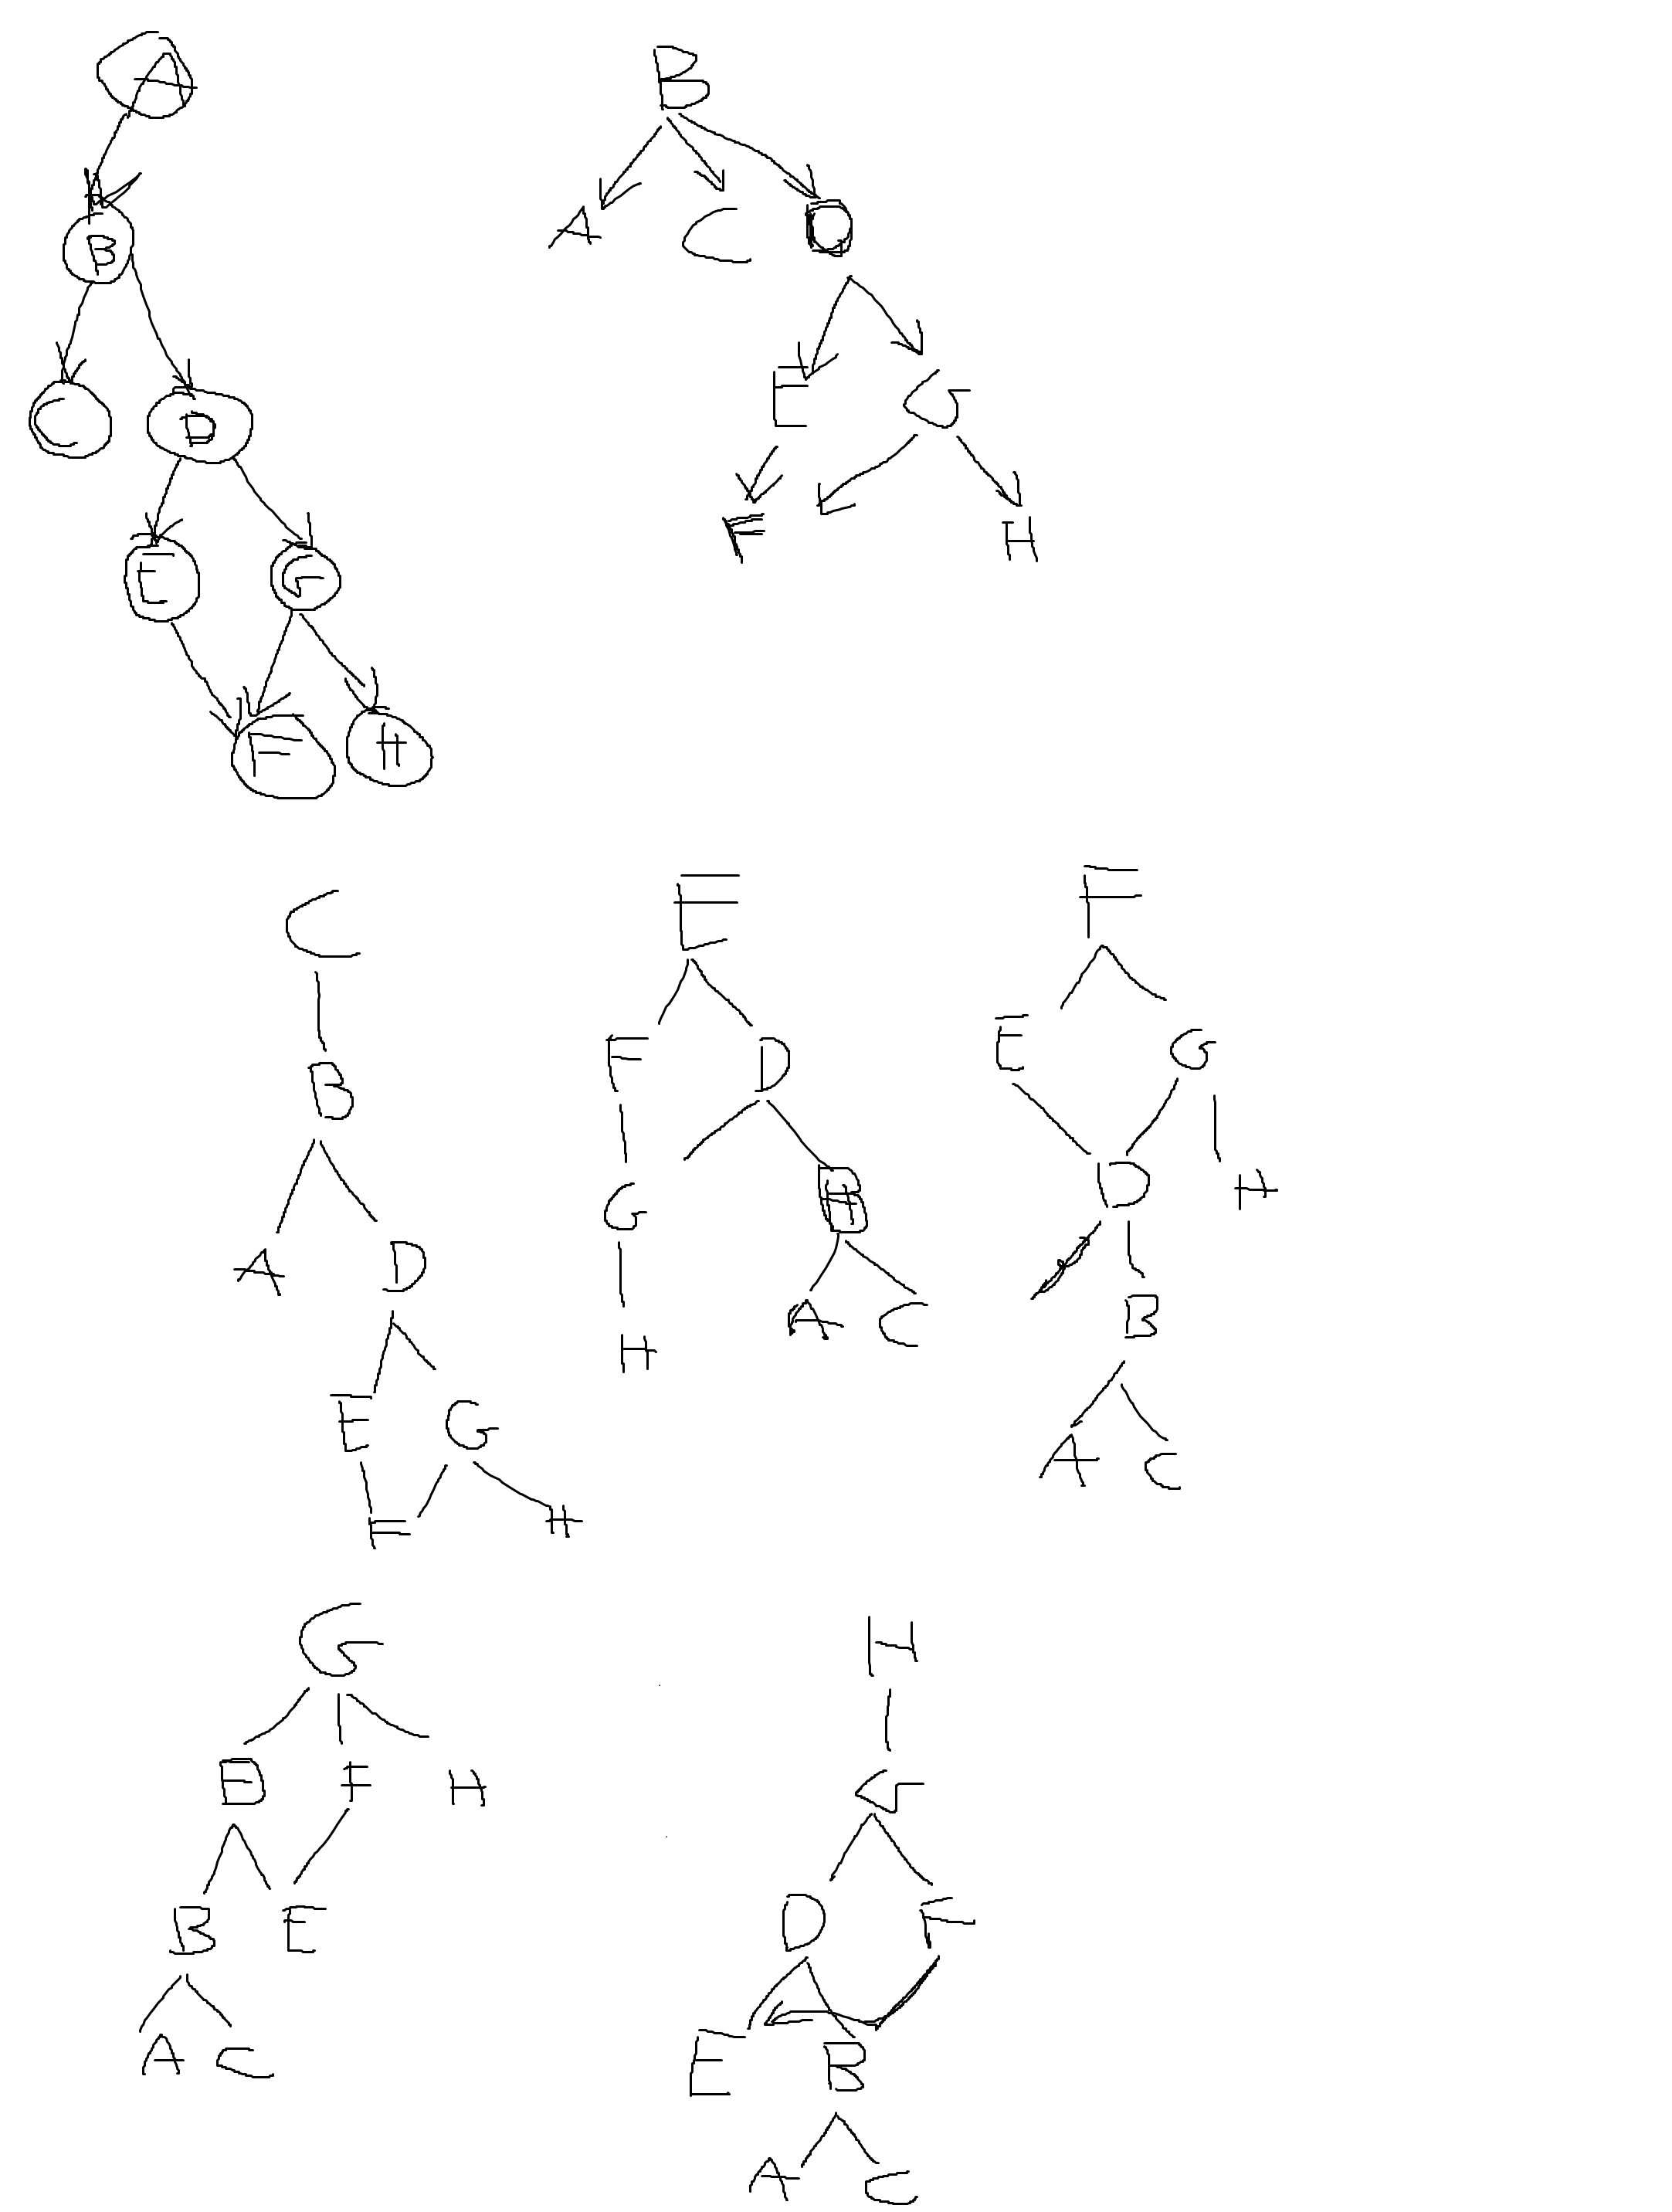 A
B
C D
E G
F H
B
A C D
E G
F H
C
B
A D
E G
F H
E
F D
G B
H A C
F
E G
D H
B
A C
G
D F H
B E
A C
H
G
D F
E B
A C